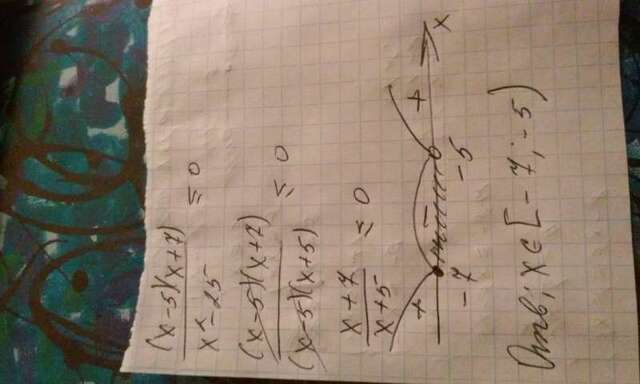 (x-5)(x+7)
x²-25 ≤ 0
(x-5)(x+7)
(x-5)(x+5) ≤ 0
x+7
x+5 ≤ 0
+ - + x
-7 -5
Отв; x∈[-7;-5)